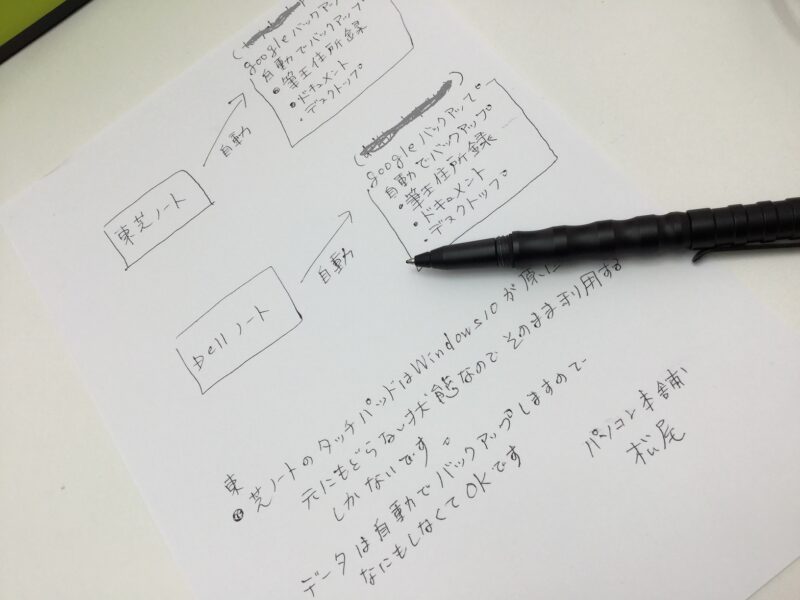 googleバックアップ
自動でバックアップ
・筆王住所録
・ドキュメント
・デスクトップ
自動
東芝ノート
googleバックアップ
自動でバックアップ
・筆王住所録
・ドキュメント
・デスクトップ
自動
Dellノート
東芝ノートのタッチパッドはWindows10が原
元にもどらない状態なのでそのまま利用する
しかないです。
データは自動でバックアップしますので
なにもしなくてOKです
パソコン本舗
松尾